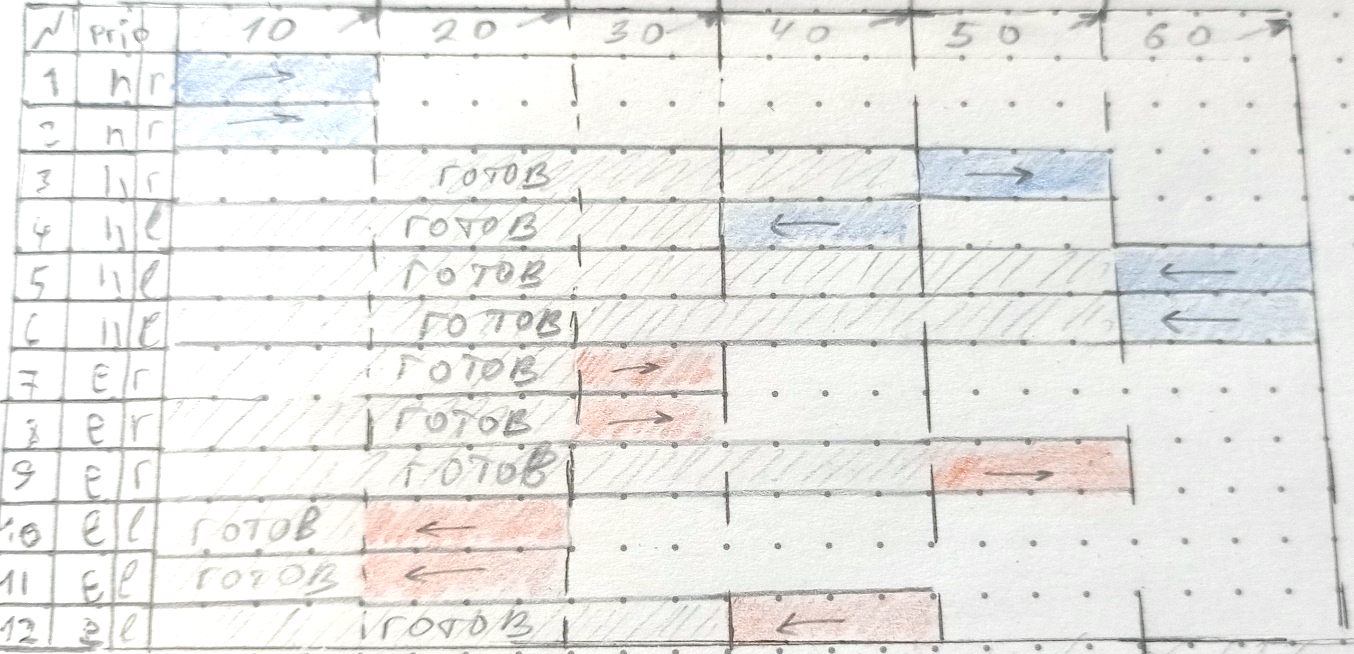 N prio 10 → 20 → 30 → 40 → 50 → 60 →
1 n r →
2 n r →
3 n r готов →
4 n l готов ←
5 n l готов ←
6 n l готов ←
7 e r готов →
8 e r готов →
9 e r готов →
10 e l готов ←
11 e l готов ←
12 e l готов ←